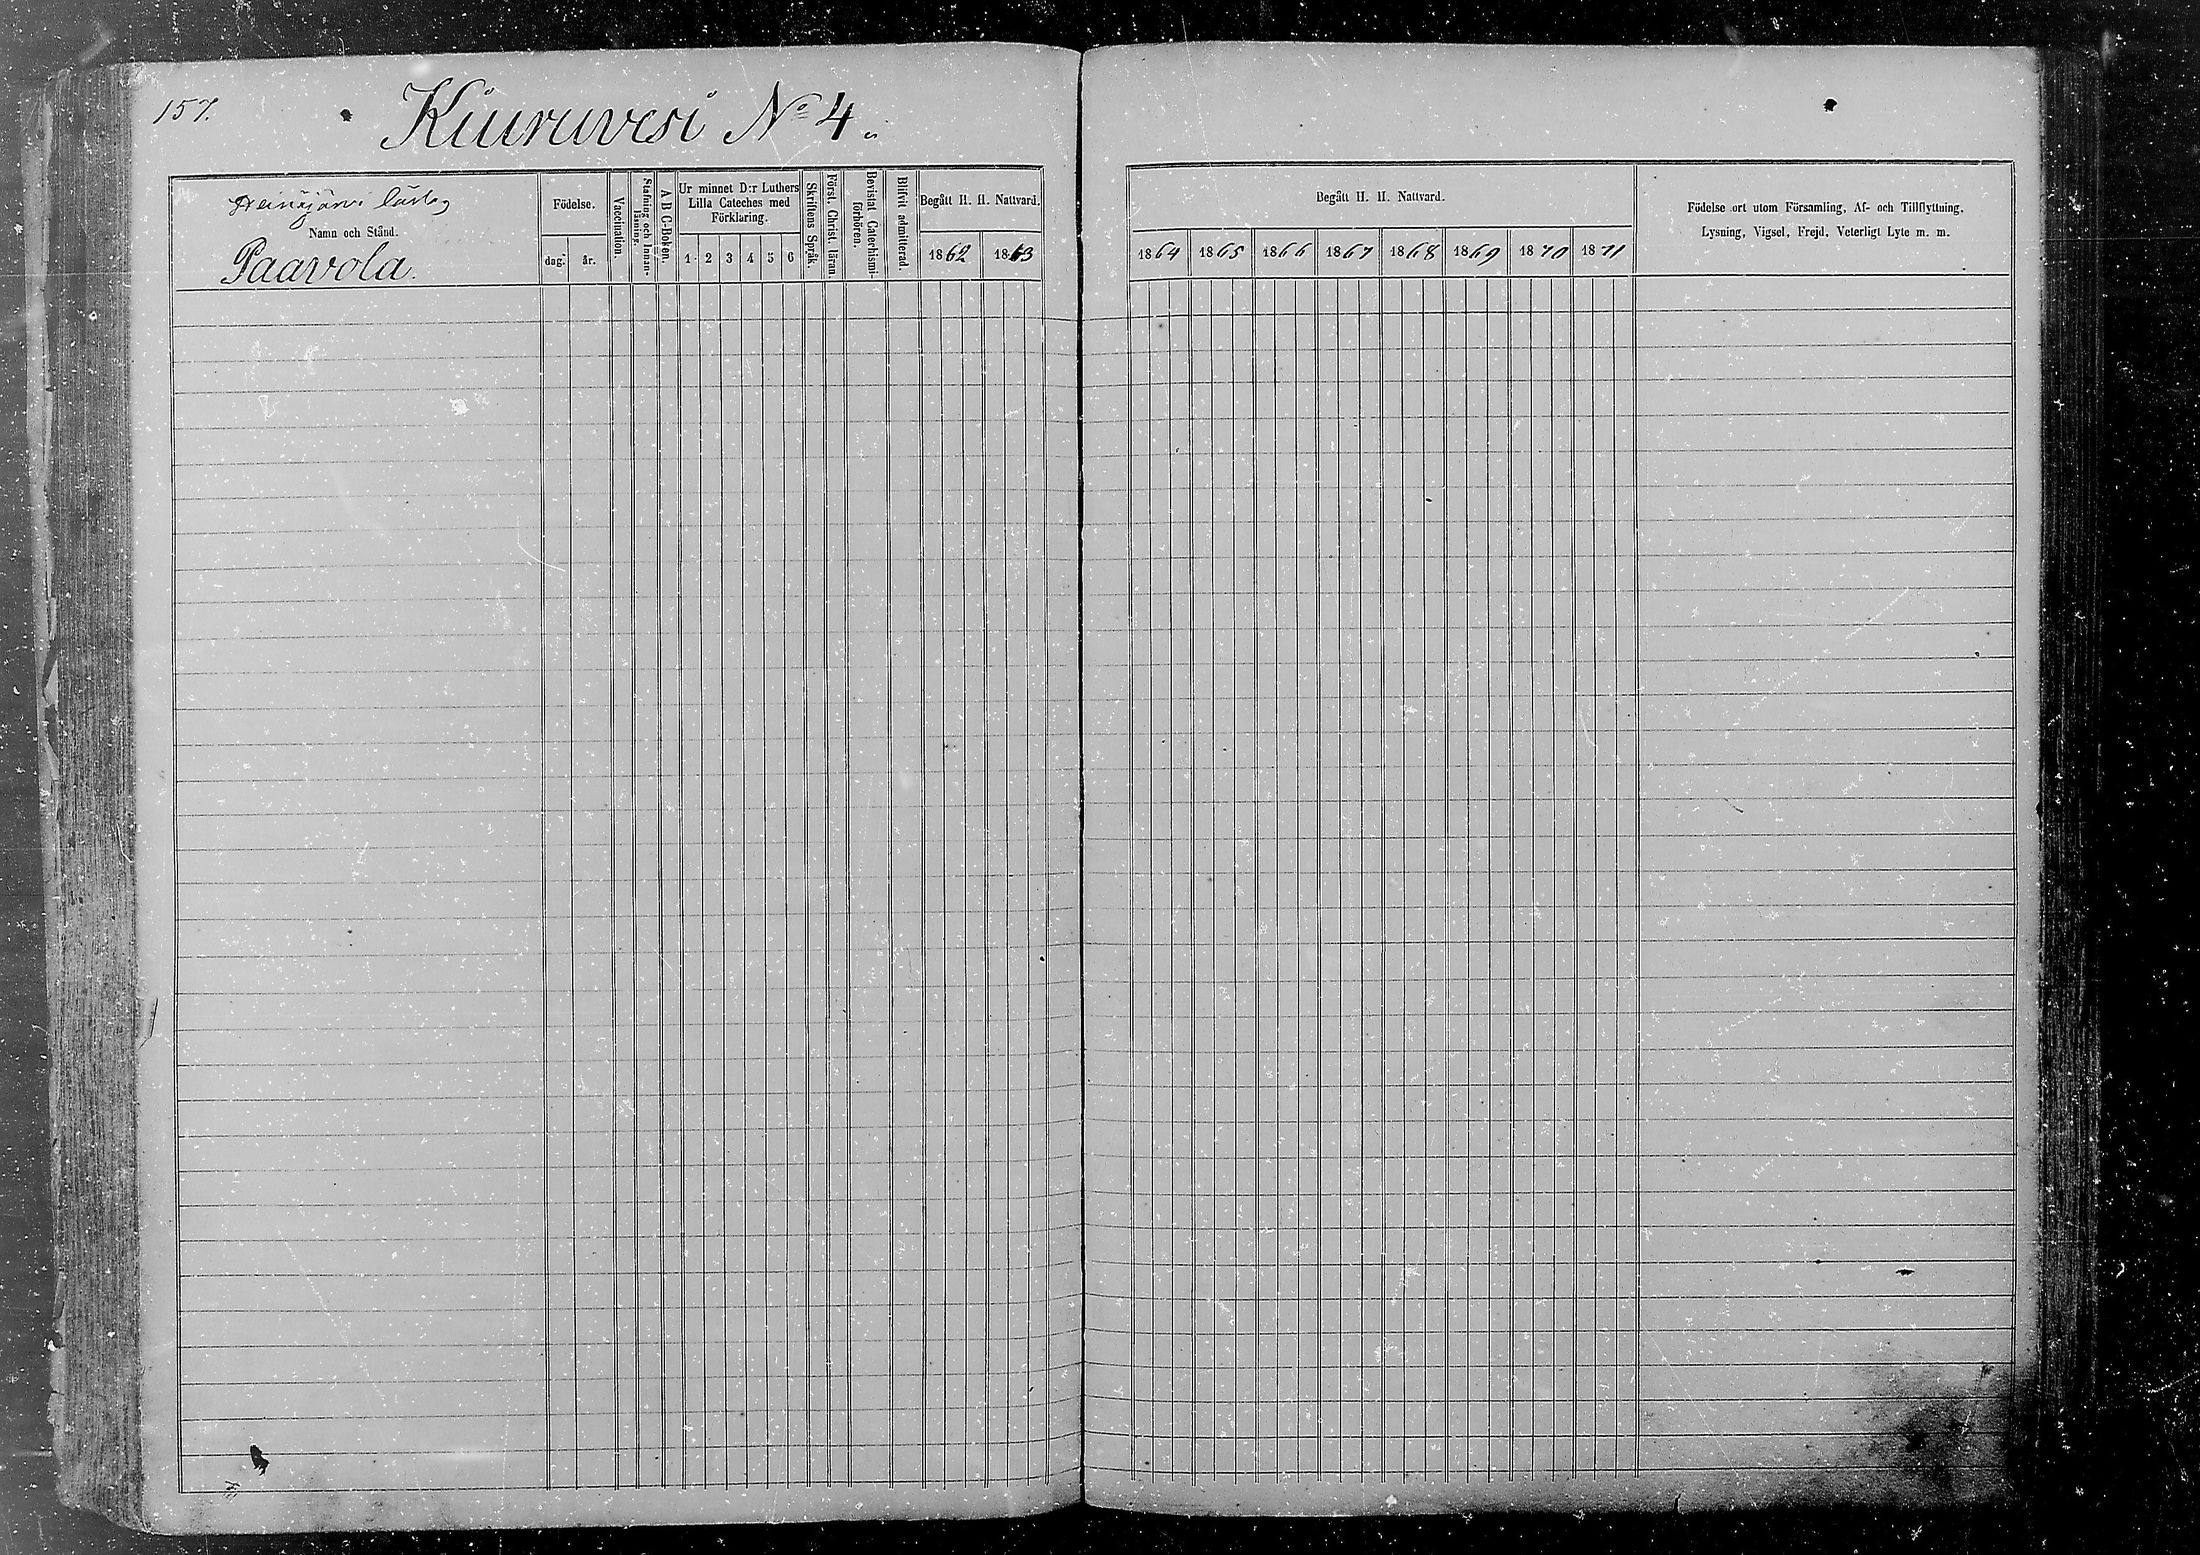 157.
Kiuruvesi No 4.
Heinäjärvi läslag
Namn och Stånd.
Paavola.
Födelse.
dag. år.
Vaccination.
Stafning och Innan-
läsning.
A B C-Boken.
Ur minnet D:r Luthers
Lilla Cateches med
Förklaring.
1 2 3 4 5 6
Skriftens Språk.
Först. Christ. läran
Bevistat Catechismi-
förhören.
Blifvit admitterad.
Begått H. H. Nattvard.
1862 1863
Begått H. H. Nattvard.
1864 1865 1866 1867 1868 1869 1870 1871
Födelse ort utom Församling, Af- och Tillflyttning,
Lysning, Vigsel, Frejd, Veterligt Lyte m. m.